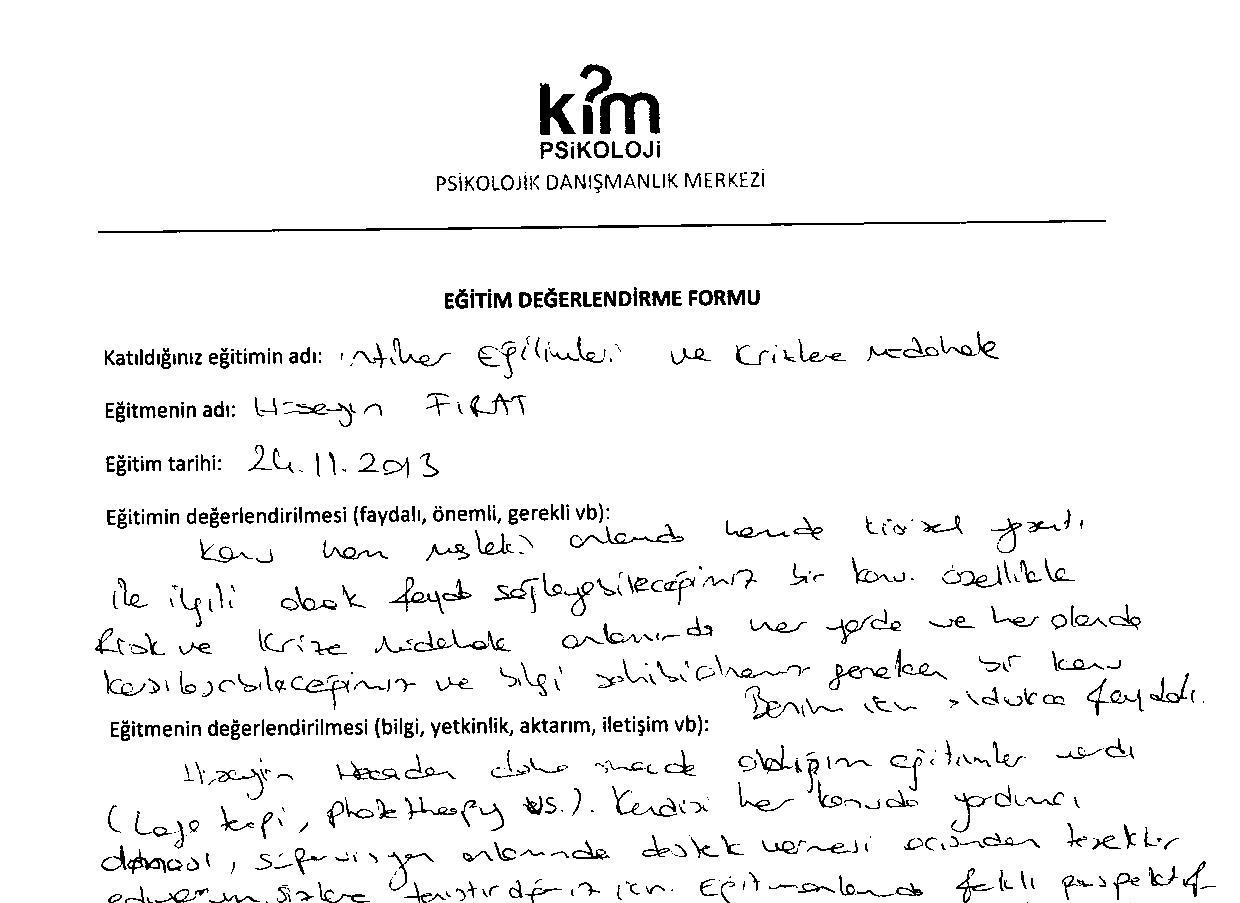 kim
PSiKOLOJi
PSİKOLOJİK DANIŞMANLIK MERKEZİ
EĞİTİM DEĞERLENDİRME FORMU
Katıldığınız eğitimin adı: intihar Eğilimleri ve Krizlere Müdahale
Eğitmenin adı: Hüseyin FIRAT
Eğitim tarihi: 24.11.2013
Eğitimin değerlendirilmesi (faydalı, önemli, gerekli vb):
Konu hem mesleki anlamda hemde kişisel yaşantı
ile ilgili olarak fayda sağlayabileceğimiz bir konu. özellikle
Risk ve Krize Müdahale anlamında her yerde ve her alanda
karşılaşabileceğimiz ve bilgi sahibi olmamız gereken bir konu
Benim için oldukca faydalı.
Eğitmenin değerlendirilmesi (bilgi, yetkinlik, aktarım, iletişim vb):
Hüseyin Hocadan daha öncede aldığım eğitimler vardı
(Logo terapi, phototherapy vs.). Kendisi her konuda yardımcı
olması, süpervizyon anlamında destek vermesi açısından teşekkür
ediyorum. Sizlere için. Eğitmenlerde farklı perspektif